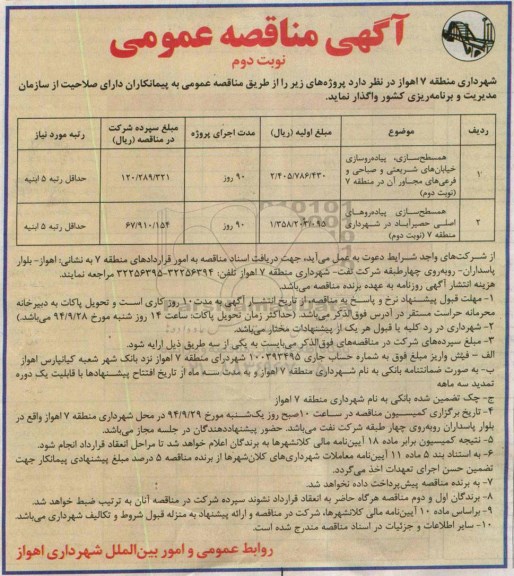 آگهی مناقصه عمومی
نوبت دوم
شهرداری منطقه ۷ اهواز در نظر دارد پروژه‌های زیر را از طریق مناقصه عمومی به پیمانکاران دارای صلاحیت از سازمان
مدیریت و برنامه‌ریزی کشور واگذار نماید.
ردیف موضوع مبلغ اولیه (ریال) مدت اجرای پروژه مبلغ سپرده شرکت در مناقصه (ریال) رتبه مورد نیاز
۱ همسطح‌سازی، پیاده‌روسازی خیابان‌های شریعتی و صباحی و فرعی‌های مجاور آن در منطقه ۷ (نوبت دوم) ۲/۴۰۵/۷۸۶/۴۳۰ ۹۰ روز ۱۲۰/۲۸۹/۳۲۱ حداقل رتبه ۵ ابنیه
۲ همسطح‌سازی پیاده‌روهای اصلی حصیرآباد در شهرداری منطقه ۷ (نوبت دوم) ۱/۳۵۸/۲۰۳/۰۹۵ ۹۰ روز ۶۷/۹۱۰/۱۵۴ حداقل رتبه ۵ ابنیه
از شرکت‌های واجد شرایط دعوت به عمل می‌آید، جهت دریافت اسناد مناقصه به امور قراردادهای منطقه ۷ به نشانی: اهواز- بلوار
پاسداران- روبه‌روی چهارطبقه شرکت نفت- شهرداری منطقه ۷ اهواز تلفن: ۳۲۲۵۶۳۹۴-۳۲۲۵۶۳۹۵ مراجعه نمایند.
هزینه انتشار آگهی روزنامه به عهده برنده مناقصه می‌باشد.
۱- مهلت قبول پیشنهاد نرخ و پاسخ به مناقصه از تاریخ انتشار آگهی به مدت ۱۰ روز کاری است و تحویل پاکات به دبیرخانه
محرمانه حراست مستقر در آدرس فوق‌الذکر می‌باشد. (حداکثر زمان تحویل پاکات: ساعت ۱۴ روز شنبه مورخ ۹۴/۹/۲۸ می‌باشد.)
۲- شهرداری در رد کلیه یا قبول هر یک از پیشنهادات مختار می‌باشد.
۳- مبلغ سپرده‌های شرکت در مناقصه‌های فوق‌الذکر می‌بایست به یکی از سه طریق ذیل ارایه شود.
الف - فیش واریز مبلغ فوق به شماره حساب جاری ۱۰۰۳۹۳۴۹۵ شهرداری منطقه ۷ اهواز نزد بانک شهر شعبه کیانپارس اهواز
ب- به صورت ضمانتنامه بانکی به نام شهرداری منطقه ۷ اهواز و به مدت سه ماه از تاریخ افتتاح پیشنهادها با قابلیت یک دوره
تمدید سه ماهه
ج- چک تضمین شده بانکی به نام شهرداری منطقه ۷ اهواز
۴- تاریخ برگزاری کمیسیون مناقصه در ساعت ۱۰صبح روز یک‌شنبه مورخ ۹۴/۹/۲۹ در محل شهرداری منطقه ۷ اهواز واقع در
بلوار پاسداران روبه‌روی چهار طبقه شرکت نفت می‌باشد. حضور پیشنهاددهندگان در جلسه مجاز می‌باشد.
۵- نتیجه کمیسیون برابر ماده ۱۸ آیین‌نامه مالی کلانشهرها به برندگان اعلام خواهد شد تا مراحل انعقاد قرارداد انجام شود.
۶- به استناد بند ۵ ماده ۱۱ آیین‌نامه معاملات شهرداری‌های کلان‌شهرها از برنده مناقصه ۵ درصد مبلغ پیشنهادی پیمانکار جهت
تضمین حسن اجرای تعهدات اخذ می‌گردد.
۷- به برنده مناقصه پیش‌پرداخت داده نخواهد شد.
۸- برندگان اول و دوم مناقصه هرگاه حاضر به انعقاد قرارداد نشوند سپرده شرکت در مناقصه آنان به ترتیب ضبط خواهد شد.
۹- براساس ماده ۱۰ آیین‌نامه مالی کلانشهرها، شرکت در مناقصه و ارائه پیشنهاد به منزله قبول شروط و تکالیف شهرداری می‌باشد.
۱۰- سایر اطلاعات و جزئیات در اسناد مناقصه مندرج شده است.
روابط عمومی و امور بین‌الملل شهرداری اهواز